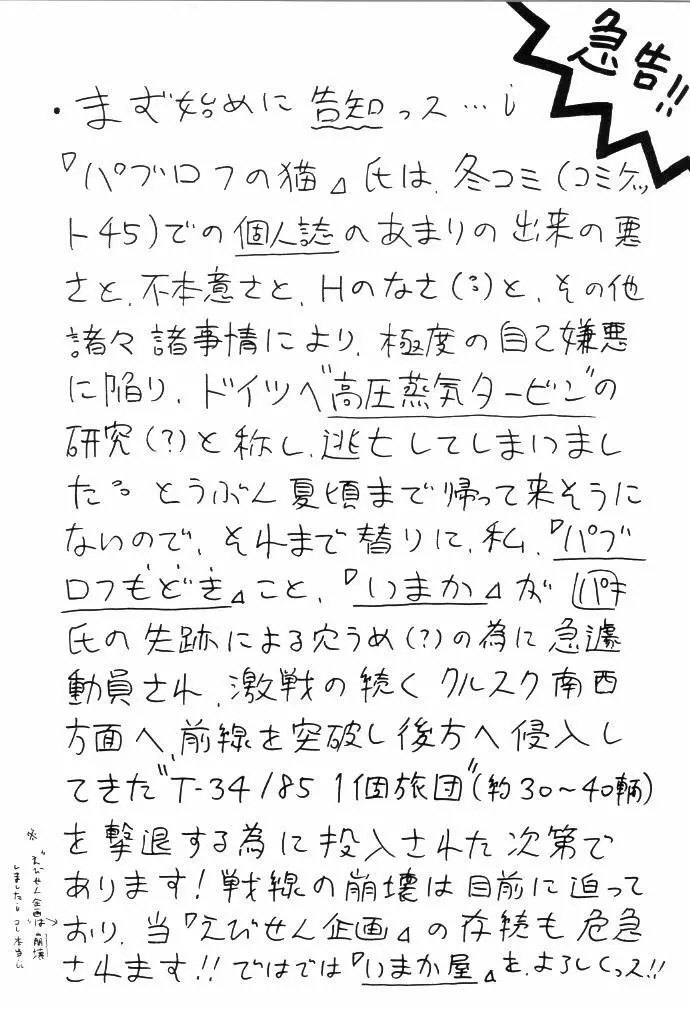 急告!!
・まず始めに告知っス…i
『パブロフの猫』氏は、冬コミ(コミケッ
ト45)での個人誌のあまりの出来の悪
さと、不本意さと、Hのなさ(:)と、その他
諸々諸事情により、極度の自己嫌悪
に陥り、ドイツへ"高圧蒸気タービン"の
研究(?)と称し、逃亡してしまいまし
た。とうぶん夏頃まで帰って来そうに
ないので、それまで替りに、私、『パブ
ロフもどき』こと、『いまか』が パキ
氏の失跡による穴うめ(?)の為に急遽
動員され、激戦の続くクルスク南西
方面へ、前線を突破し後方へ侵入し
てきた"T-34/85 1個旅団"(約30〜40輌)
を撃退する為に投入された次第で
あります!戦線の崩壊は目前に迫って
おり、当『えびせん企画』の存続も危急
されます!!ではでは『いまか屋』を、よろしくっス!!
※"えびせん企画"は崩壊
しましたi コレ本当i